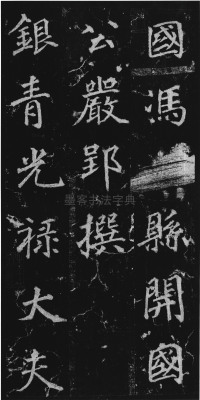 國馮縣開國
公嚴郢撰
銀青光祿大夫
墨客书法字典